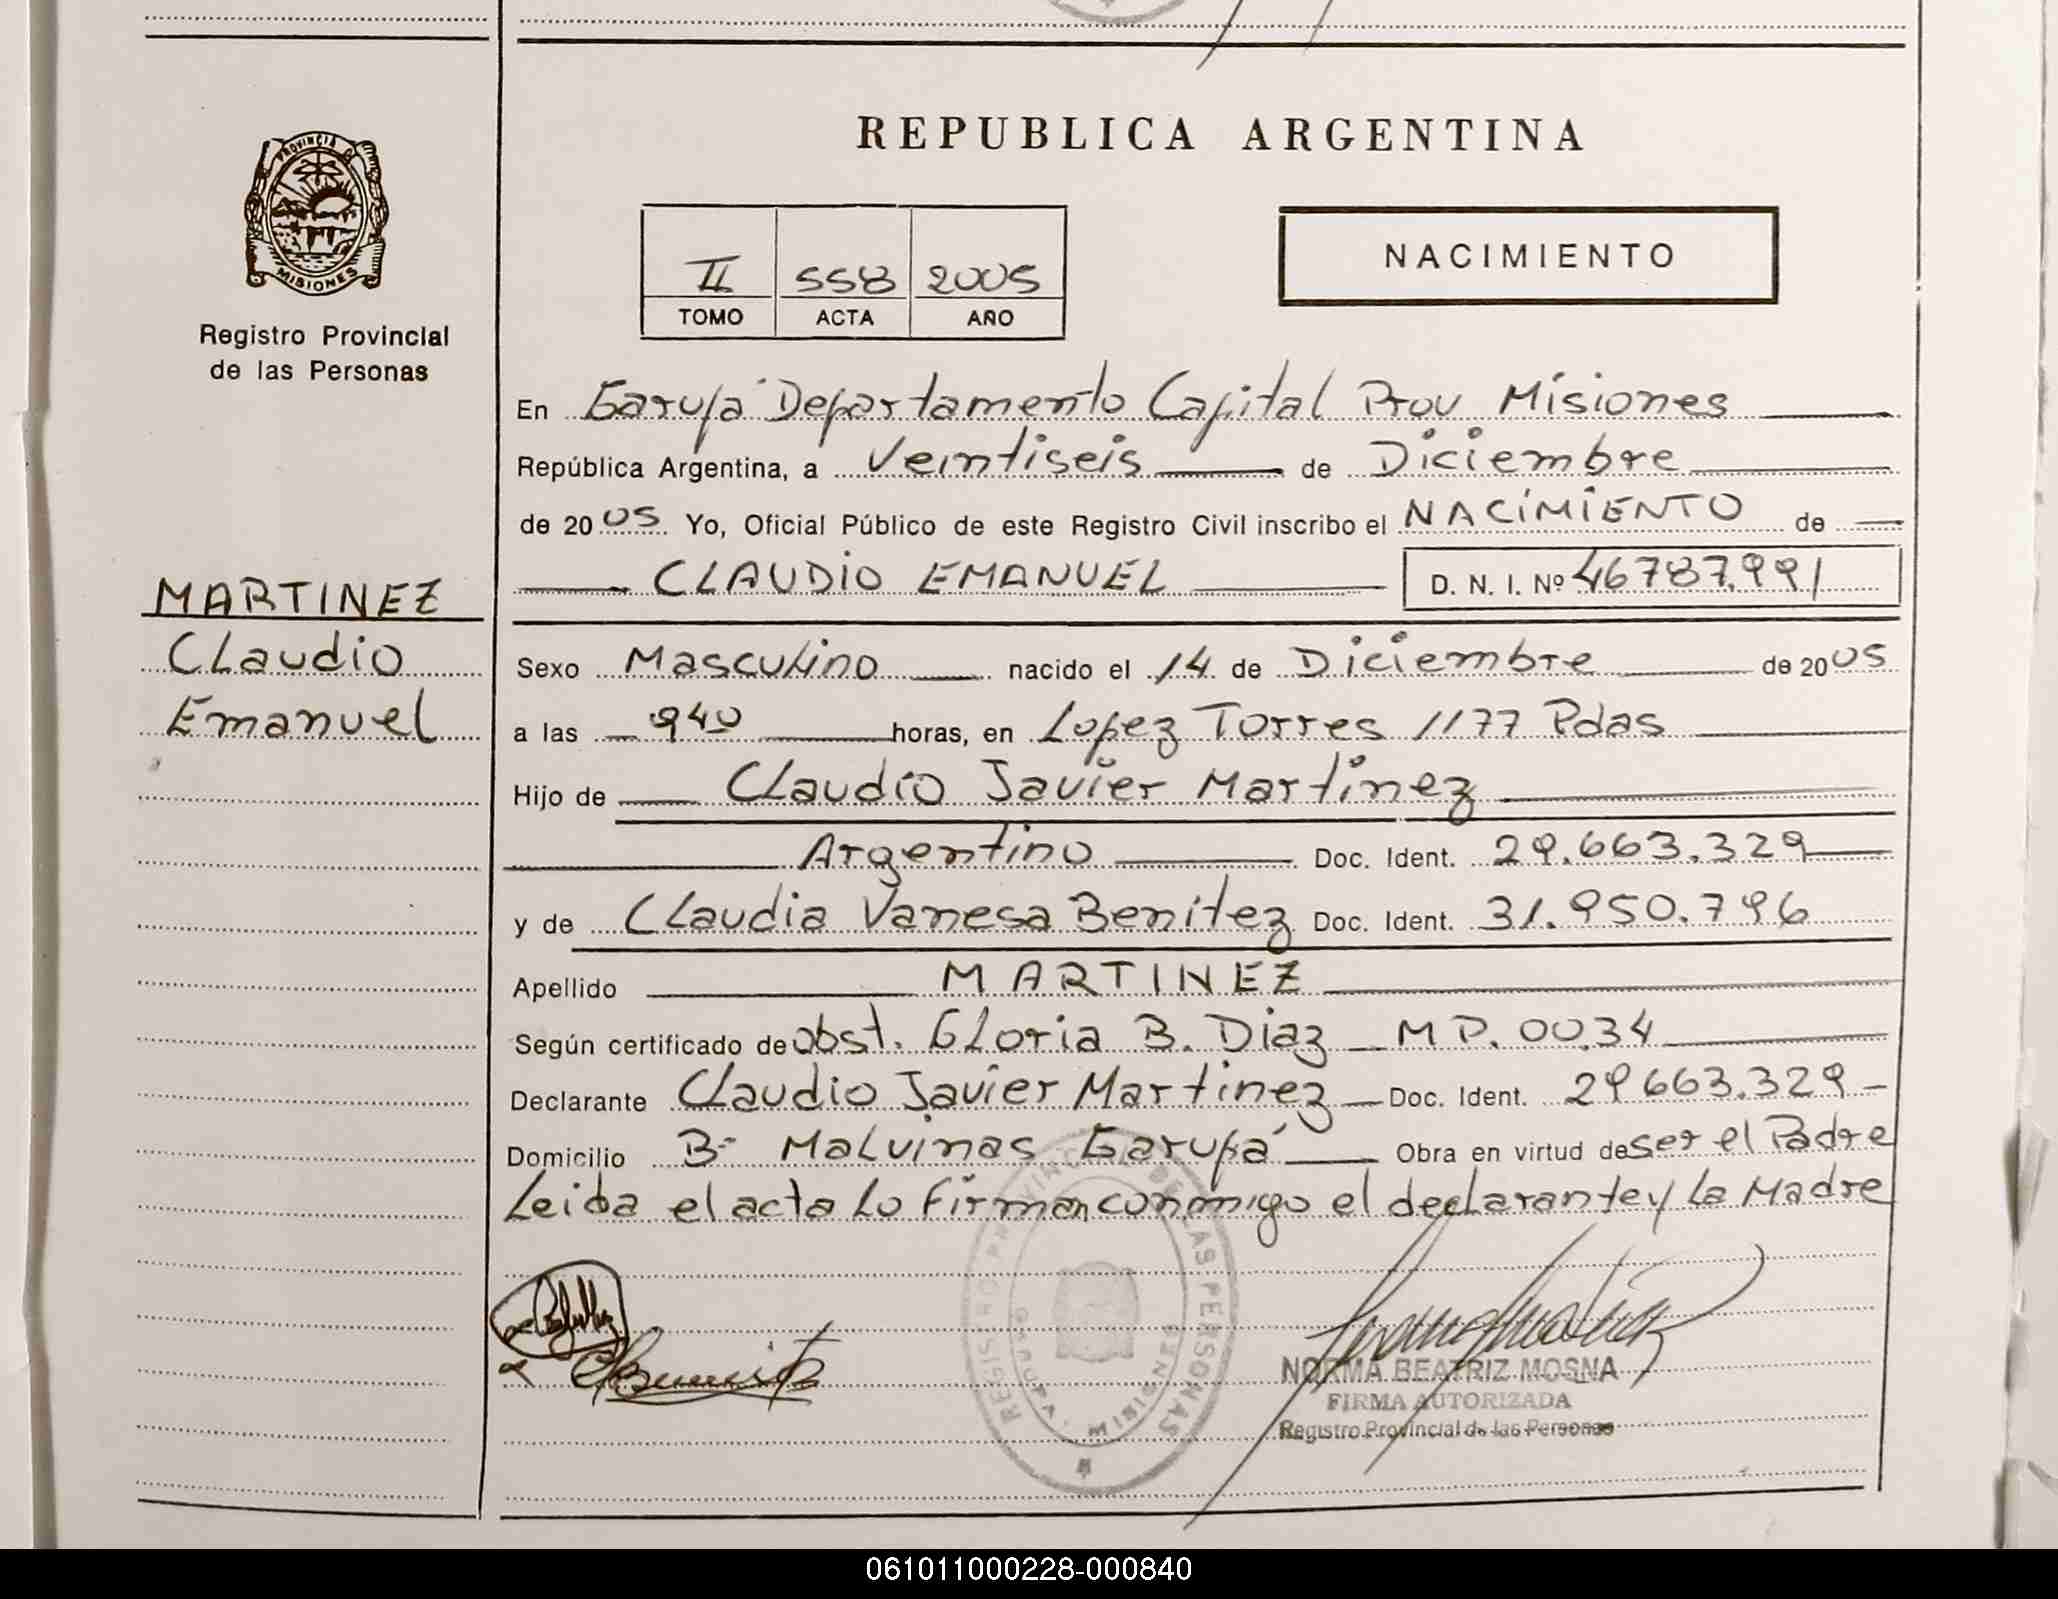 REPUBLICA ARGENTINA
PROVINCIA D
MISIONES
Registro Provincial
de las Personas
II 558 2005
TOMO ACTA AÑO
NACIMIENTO
En Garupá Departamento Capital Prov Misiones
República Argentina, a Veintiseis de Diciembre
de 2005 Yo, Oficial Público de este Registro Civil inscribo el NACIMIENTO de
CLAUDIO EMANUEL D. N. I. Nº 46787.991
MARTINEZ
Claudio
Emanuel
Sexo Masculino nacido el 14 de Diciembre de 2005
a las 940 horas, en Lopez Torres 1177 Pdas
Hijo de Claudio Javier Martinez
Argentino Doc. Ident. 29.663.329
y de Claudia Vanesa Benitez Doc. Ident. 31.950.796
Apellido MARTINEZ
Según certificado de obst. Gloria B. Diaz MP. 0034
Declarante Claudio Javier Martinez Doc. Ident. 29663.329
Domicilio Bº Malvinas Garupá Obra en virtud de ser el Padre
Leida el acta lo firman conmigo el declarante y la Madre
REGISTRO PROVINCIAL DE LAS PERSONAS
NORMA BEATRIZ MOSNA
FIRMA AUTORIZADA
Registro Provincial de las Personas
061011000228-000840